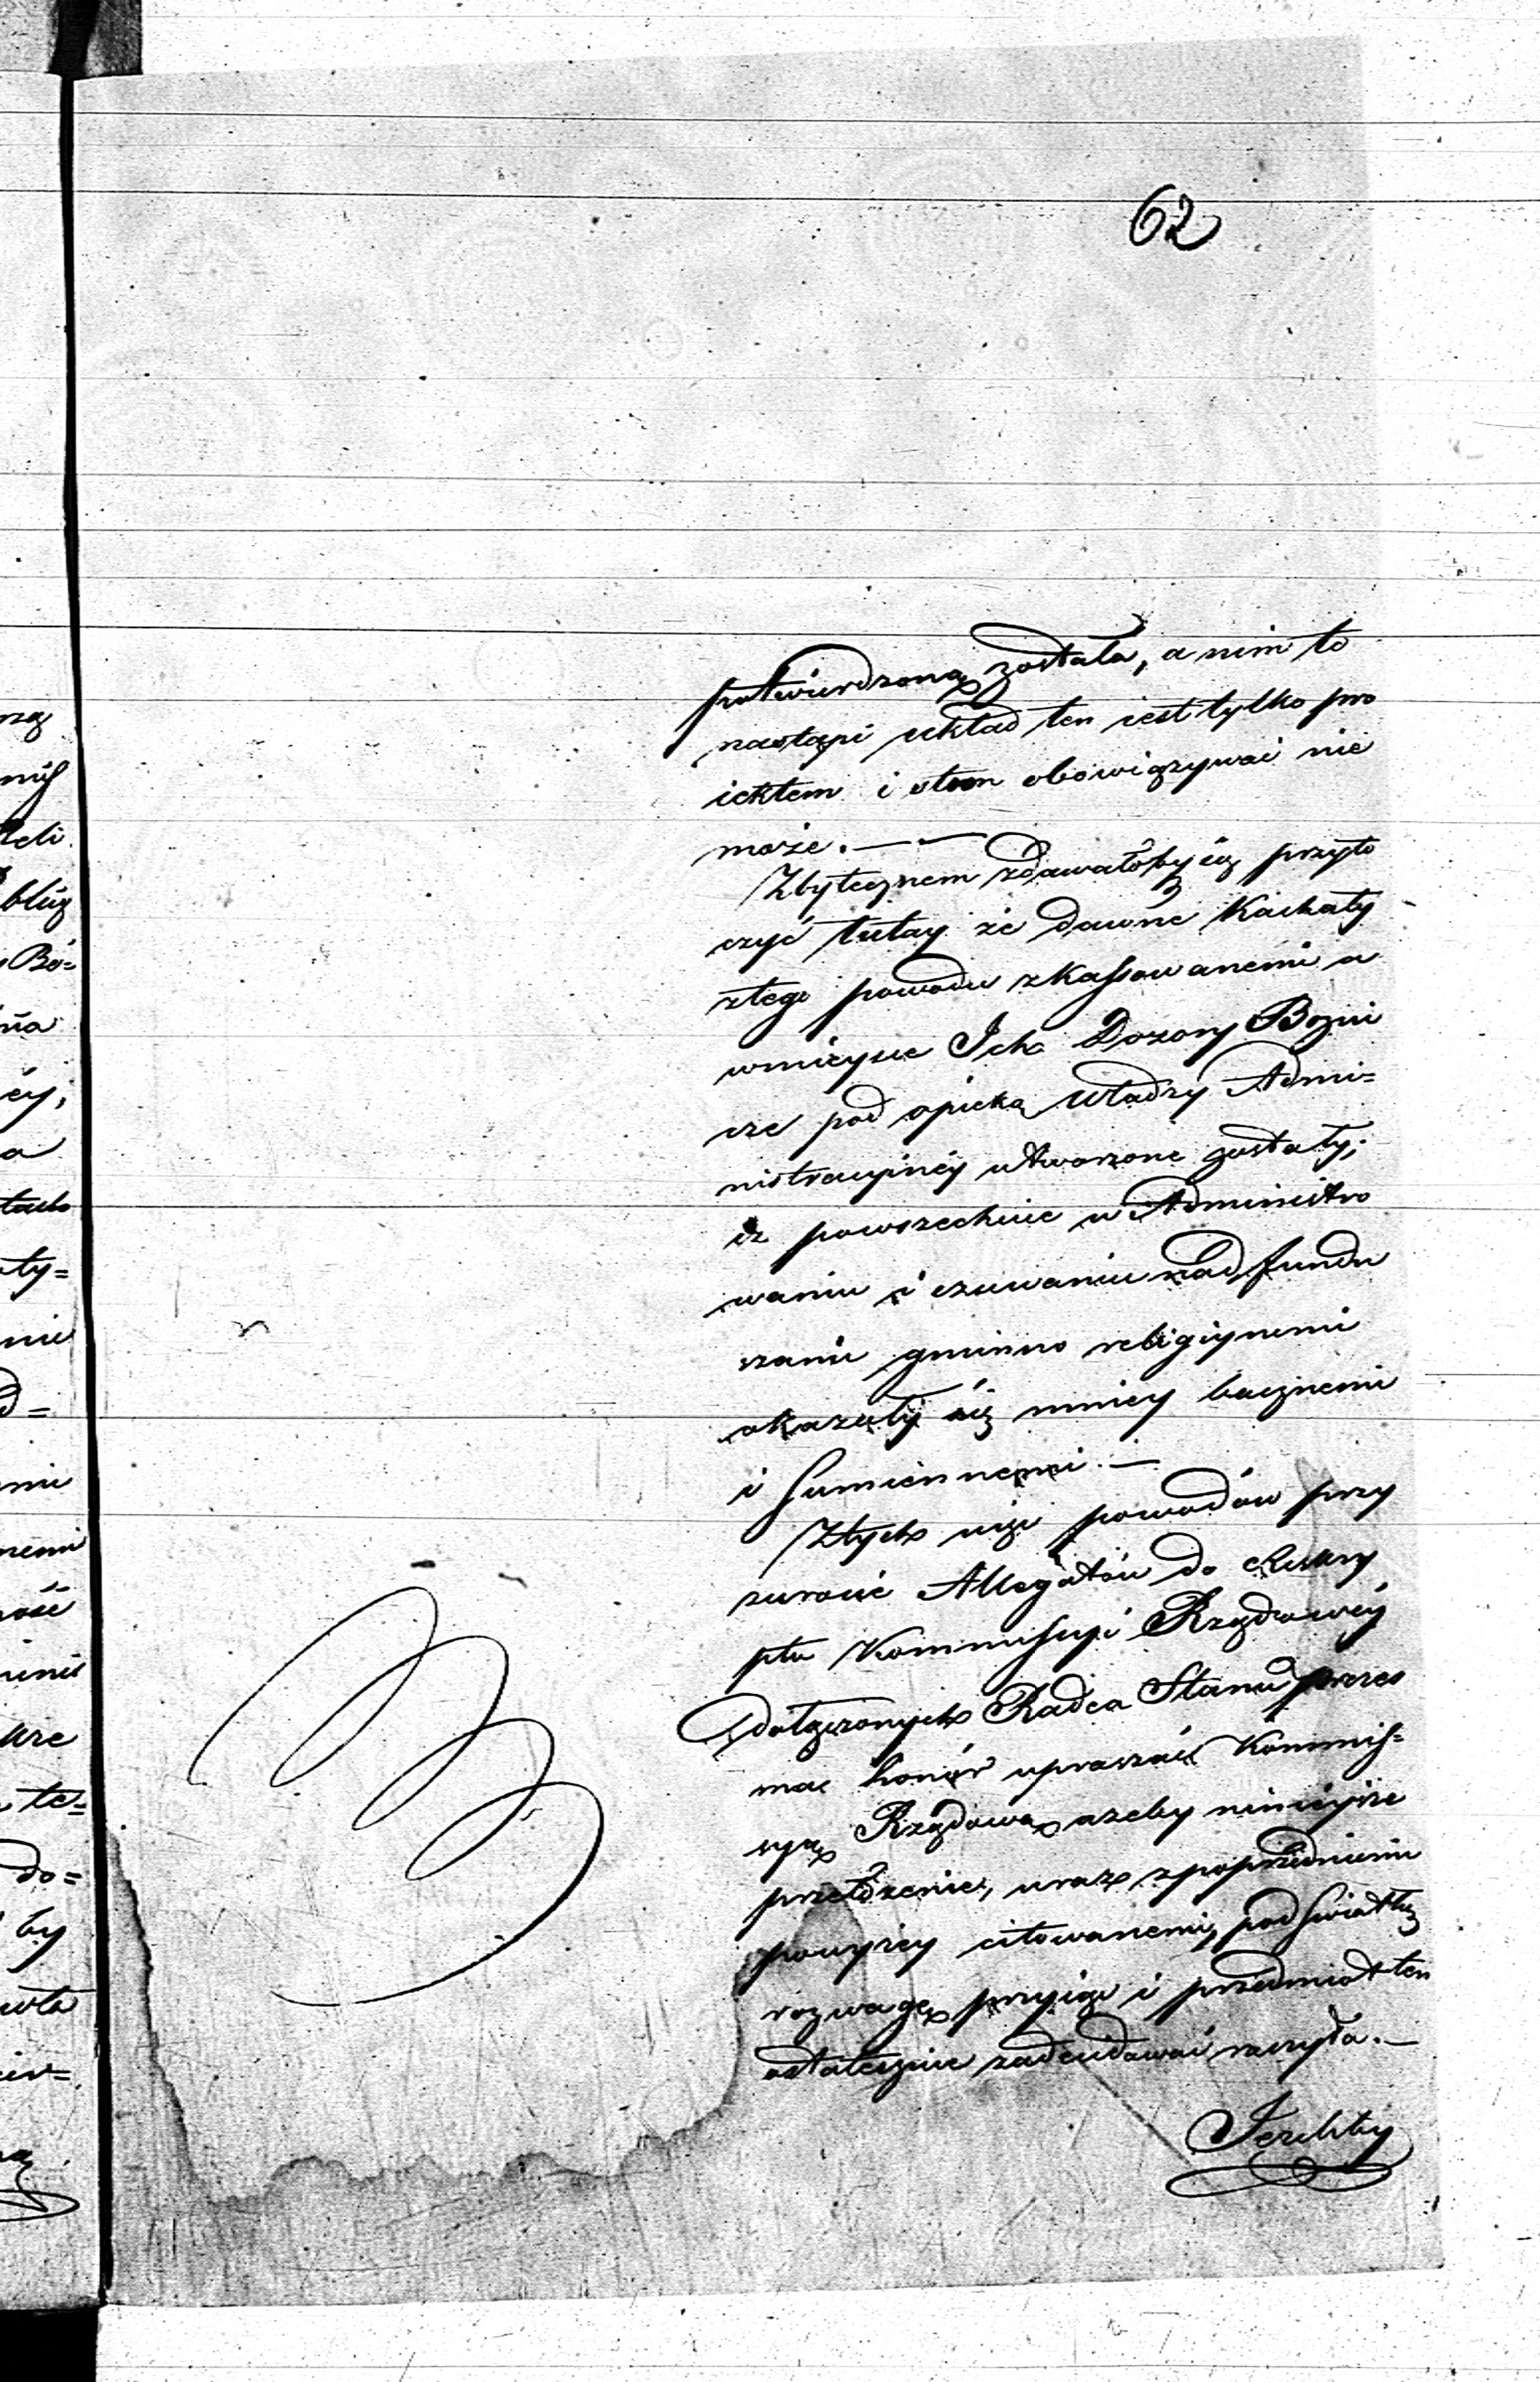 62
potwierdzoną została, a nim to
nastąpi układ ten iest tylko pro
iektem i stron obowiązywać nie
może. — —
Zbytecznem zdawałoby się przyto
czyć tutay że dawne Kachały
ztego powodu zkassowanemi a
wmieysce Ich Dozory Bozni
cze pod opieką Władzy Admi=
nistracyinéy utworzone zostały;
iż powszechnie w Administro
waniu i czuwaniu nad fundu
szami gminno religiynemi
okazały się mniey bacznemi
i sumiennemi. —
Ztych więc powodów przy
zwrocie Allegatów do Reskry
ptu Kommissyi Rządowéy
dołączonych Radca Stanu Prezes
ma honor upraszać Kommis=
syą Rządową azeby ninieysze
przełożenie, wraz zpoprzedniemi
powyżey citowanemi, pod światłą
rozwagę przyiąć i przedmiot ten
ostatecznie zadecidować raczyła. —